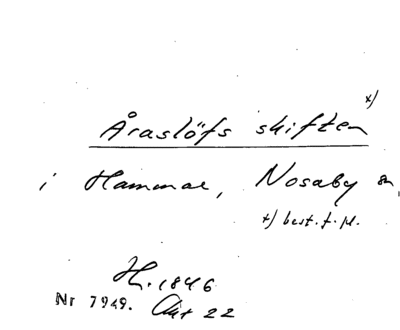 Åraslöfs skiften x)
i Hammar, Nosaby sn,
x) best. f. pl.
Hr. 1846
Nr 7949. Akt 22